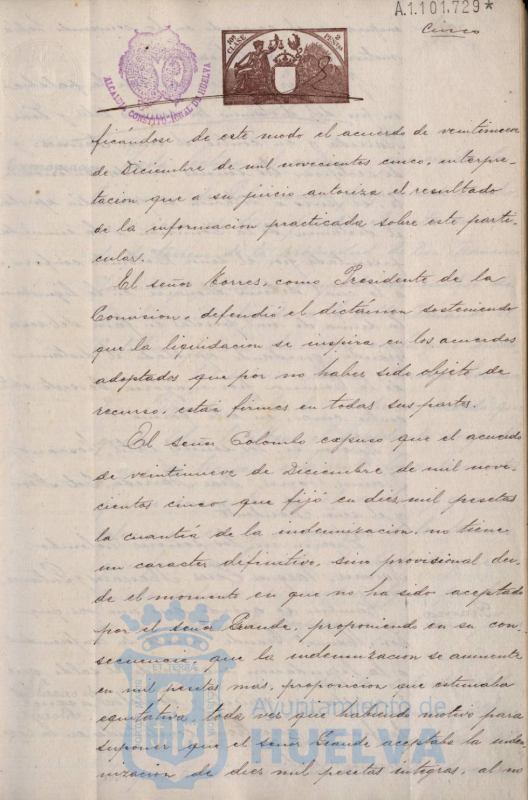 A.1.101.729*
Cinco
10ª CLASE 2 PESETAS
ALCALDIA CONSTITUCIONAL DE HUELVA
ficándose de este modo el acuerdo de veintinueve
de Diciembre de mil novecientos cinco, interpre-
tacion que a su juicio autoriza el resultado
de la informacion practicada sobre este parti-
cular.
El señor Torres, como Presidente de la
Comision, defendió el dictámen sosteniendo
que la liquidacion se inspira en los acuerdos
adoptados que por no haber sido objeto de
recurso, están firmes en todas sus partes.
El señor Colombo expuso que el acuerdo
de veintinueve de Diciembre de mil nove-
cientos cinco que fijó en diez mil pesetas
la cuantía de la indemnizacion, no tiene
un caracter definitivo, sino provisional des-
de el momento en que no ha sido aceptado
por el señor Grande, proponiendo en su con-
secuencia, que la indemnizacion se aumente
en mil pesetas más, proposicion que estimaba
equitativa, toda vez que habiendo motivo para
suponer que el señor Grande aceptaba la indem-
nizacion de diez mil pesetas íntegras, al no
Ayuntamiento de
HUELVA